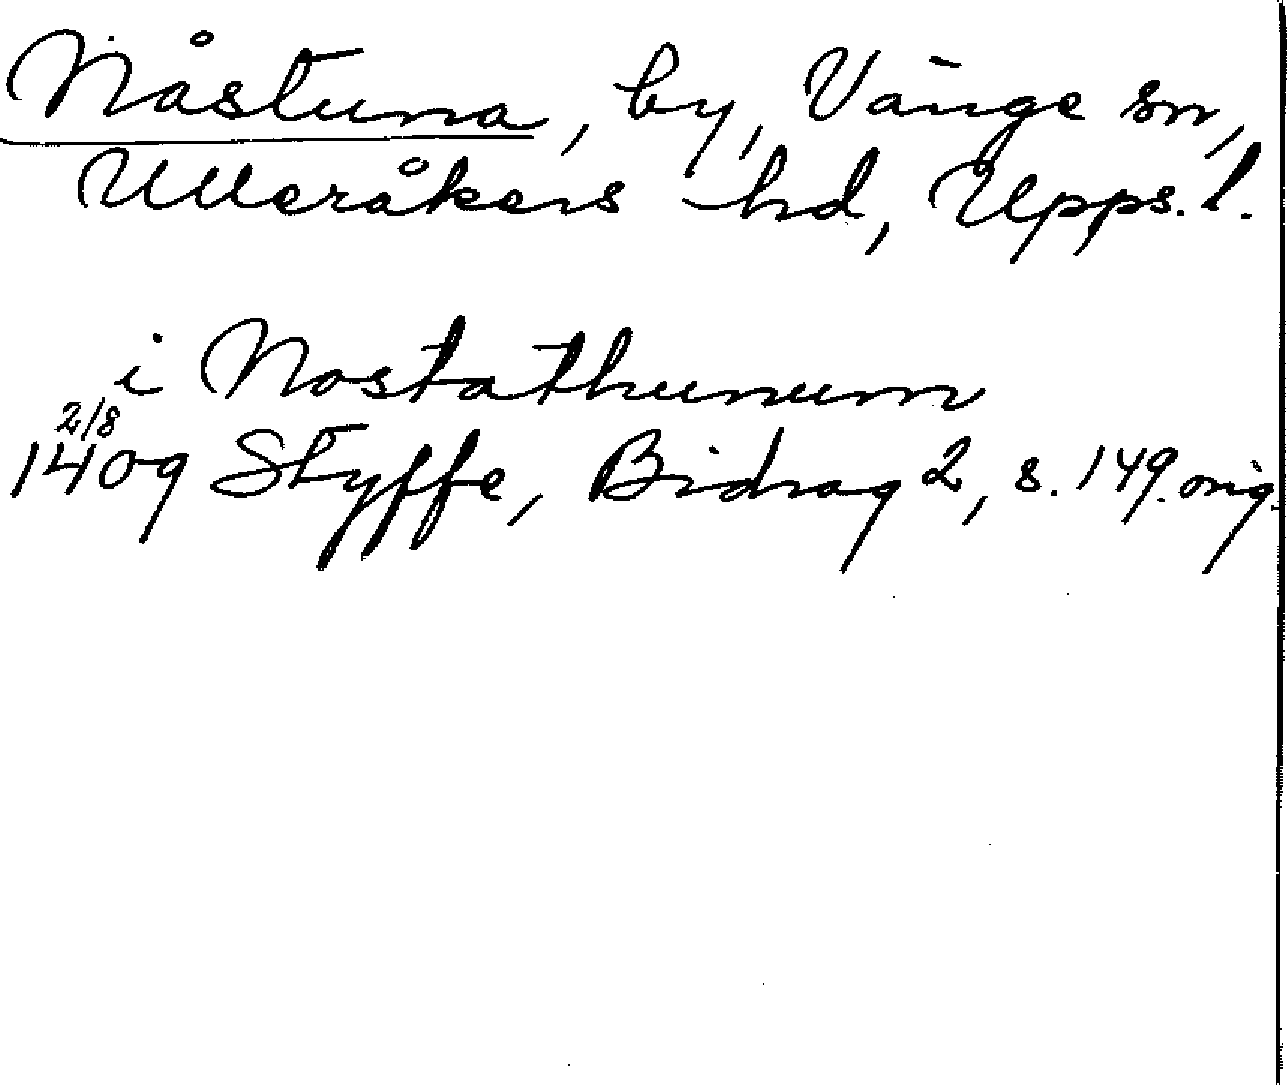 Nåstuna, by, Vänge sn,
Ulleråkers hd, Upps. l.
i Nostathunum
2/8
1409 Styffe, Bidrag 2, s. 149. orig.